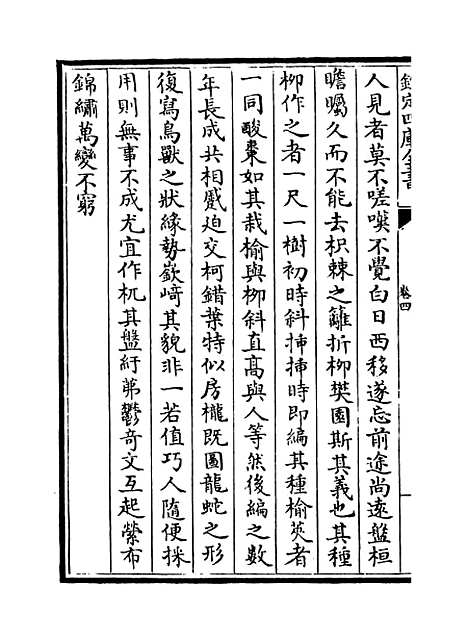 欽定四庫全書
卷四
人見者莫不嗟嘆不覺白日西移遂忘前途尚遠盤桓
瞻矚久而不能去枳棘之籬折柳樊園斯其義也其種
柳作之者一尺一樹初時斜揷揷時即編其種榆莢者
一同酸棗如其栽榆與柳斜直髙與人等然後編之數
年長成共相蹙迫交柯錯葉特似房櫳既圖龍蛇之形
復寫鳥獸之狀縁勢嶔﨑其貌非一若值巧人隨便採
用則無事不成尤宜作机其盤紆茀鬱奇文互起縈布
錦繡萬變不窮